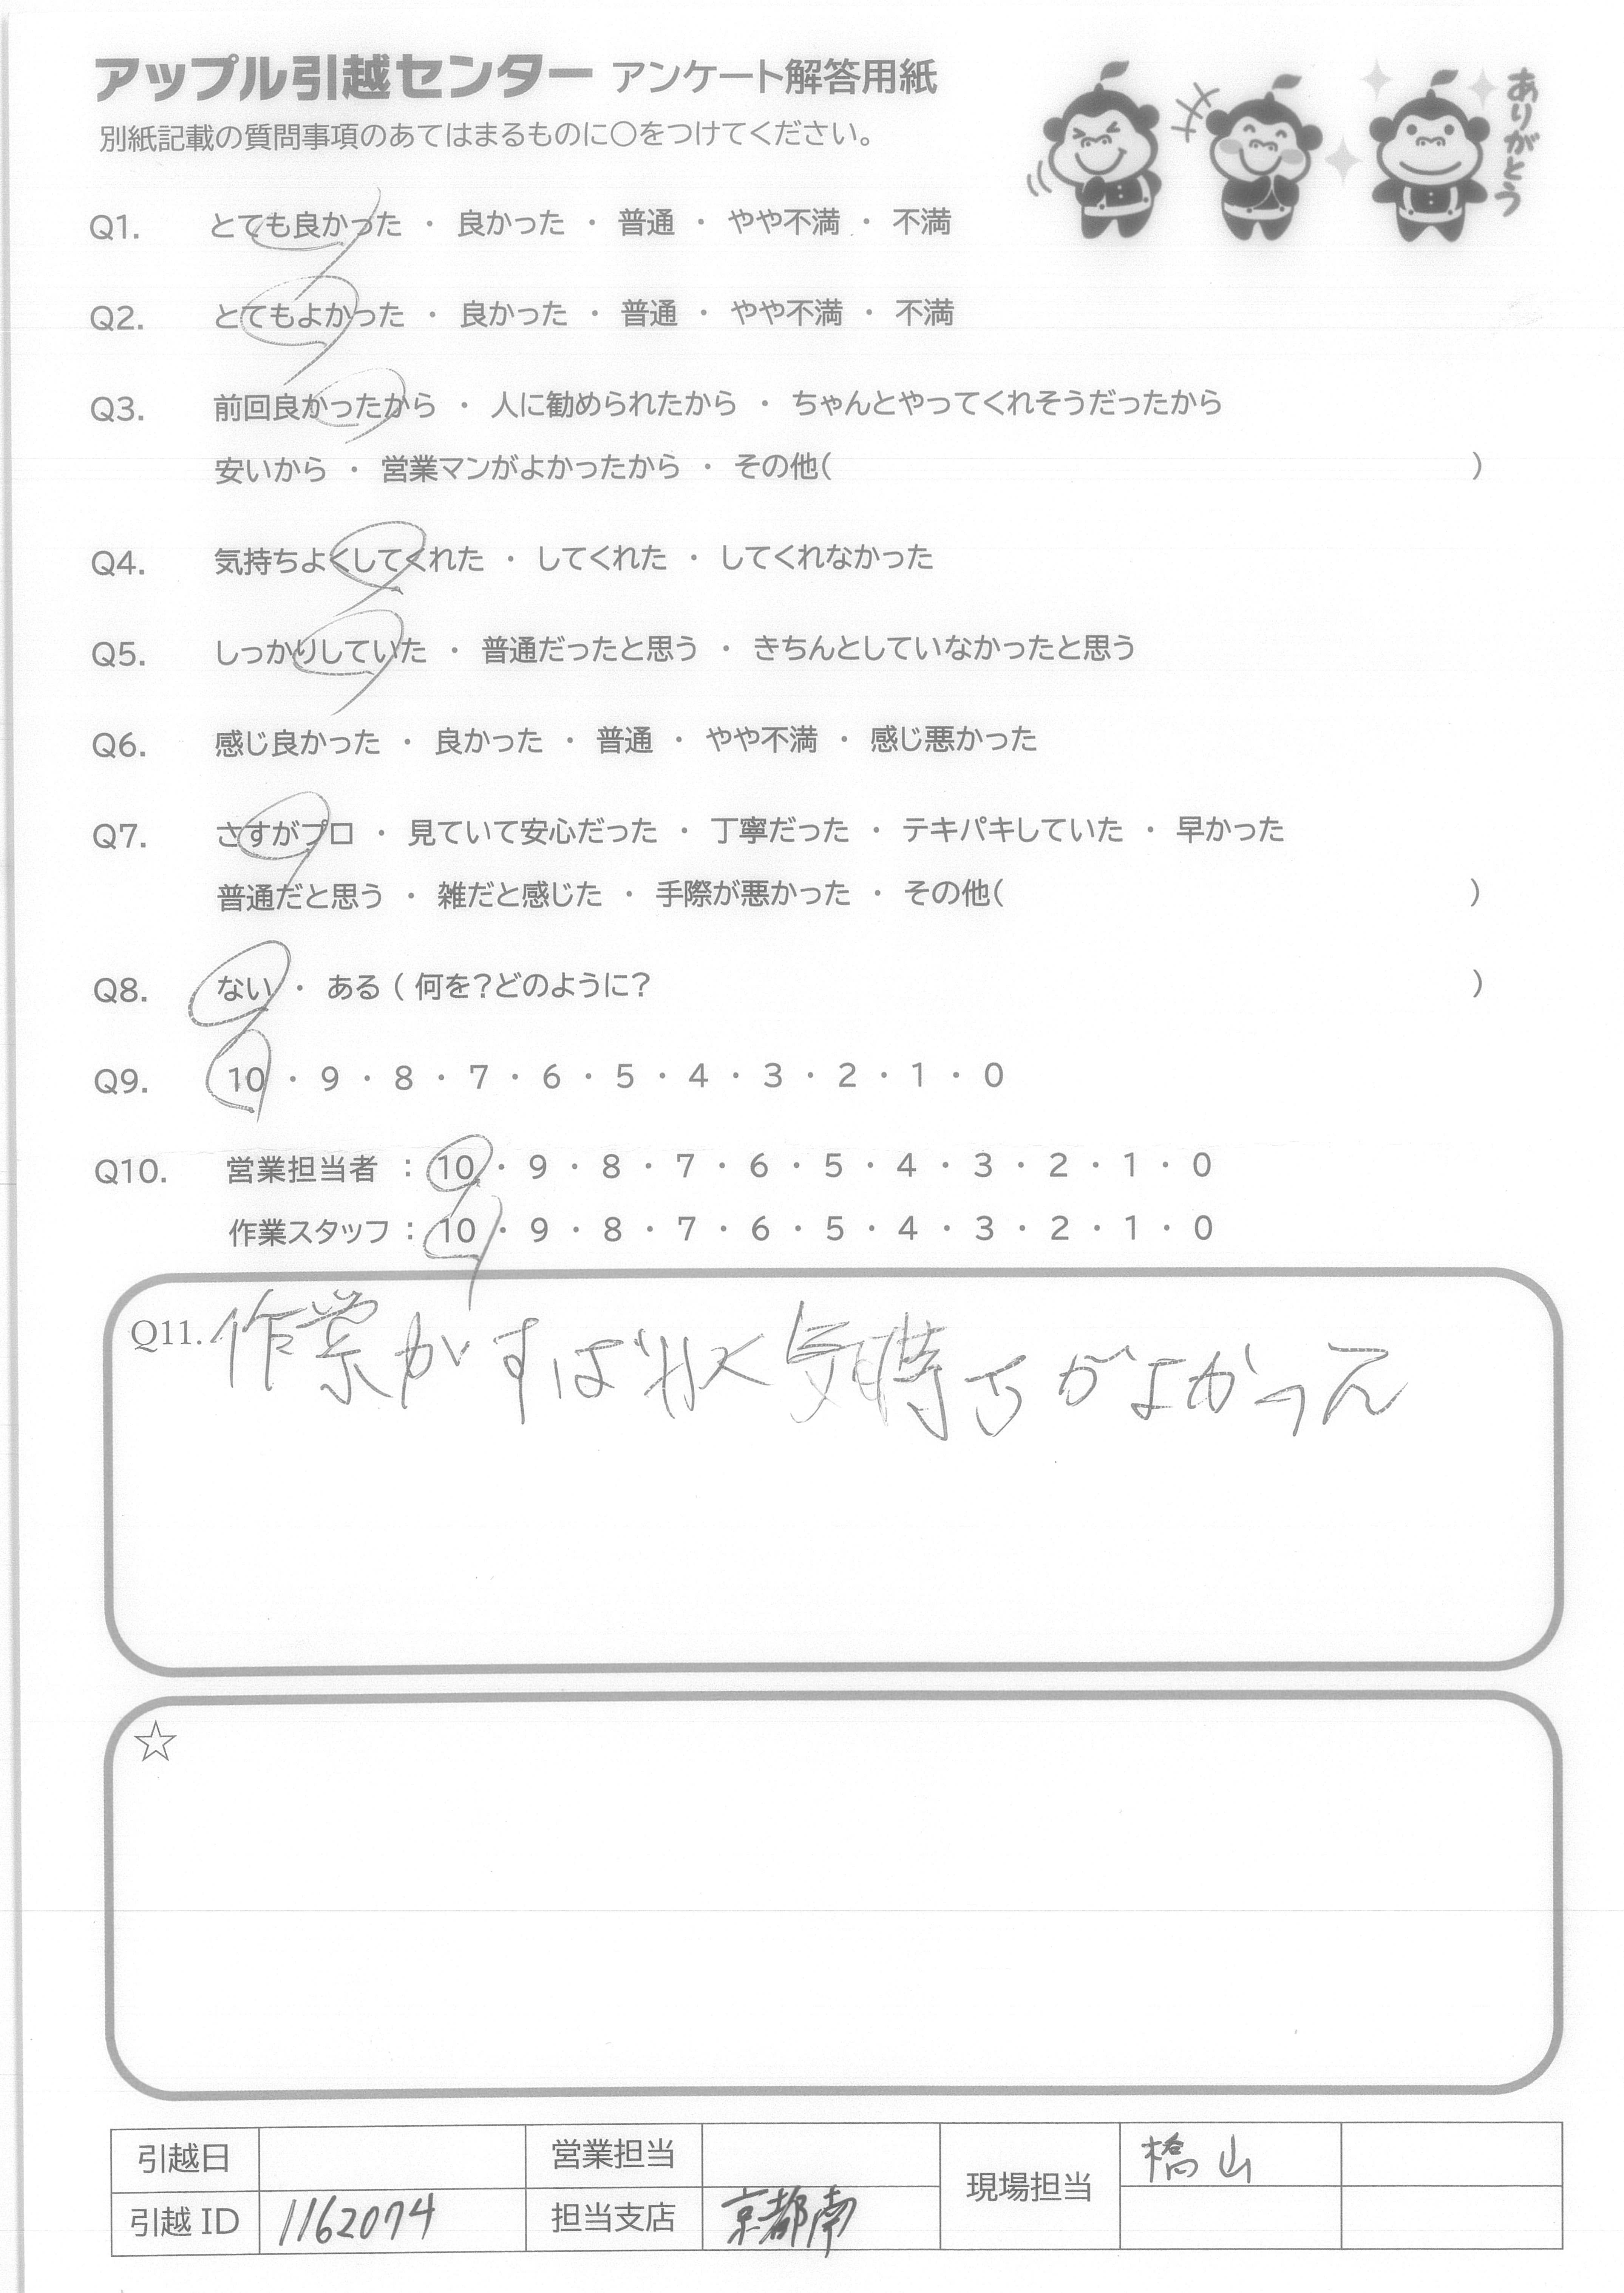 アップル引越センター アンケート解答用紙
ありがとう
別紙記載の質問事項のあてはまるものに〇をつけてください。
Q1. とても良かった ・ 良かった ・ 普通 ・ やや不満 ・ 不満
Q2. とてもよかった ・ 良かった ・ 普通 ・ やや不満 ・ 不満
Q3. 前回良かったから ・ 人に勧められたから ・ ちゃんとやってくれそうだったから
安いから ・ 営業マンがよかったから ・ その他( )
Q4. 気持ちよくしてくれた ・ してくれた ・ してくれなかった
Q5. しっかりしていた ・ 普通だったと思う ・ きちんとしていなかったと思う
Q6. 感じ良かった ・ 良かった ・ 普通 ・ やや不満 ・ 感じ悪かった
Q7. さすがプロ ・ 見ていて安心だった ・ 丁寧だった ・ テキパキしていた ・ 早かった
普通だと思う ・ 雑だと感じた ・ 手際が悪かった ・ その他( )
Q8. ない ・ ある ( 何を?どのように? )
Q9. 10 ・ 9 ・ 8 ・ 7 ・ 6 ・ 5 ・ 4 ・ 3 ・ 2 ・ 1 ・ 0
Q10. 営業担当者 : 10 ・ 9 ・ 8 ・ 7 ・ 6 ・ 5 ・ 4 ・ 3 ・ 2 ・ 1 ・ 0
作業スタッフ : 10 ・ 9 ・ 8 ・ 7 ・ 6 ・ 5 ・ 4 ・ 3 ・ 2 ・ 1 ・ 0
Q11. 作業がすばやく気持ちがよかった
☆
引越日 営業担当 現場担当 橋山
引越 ID 1162074 担当支店 京都南